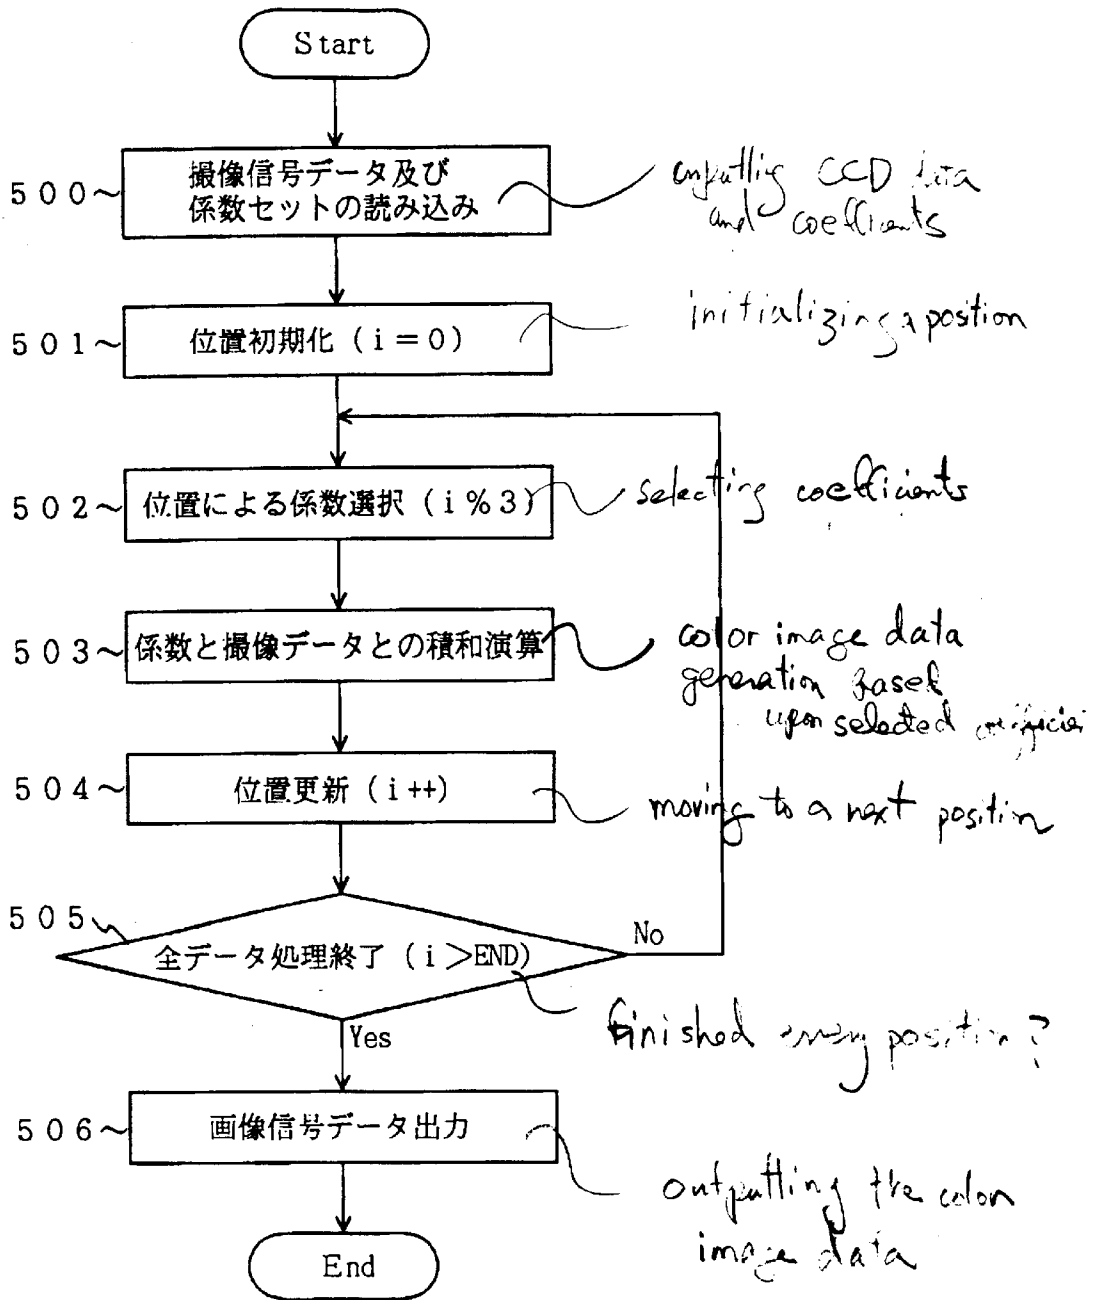 Start
５００～
撮像信号データ及び
係数セットの読み込み
inputting CCD data
and coefficients
５０１～
位置初期化（ｉ＝０）
initializing a position
５０２～
位置による係数選択（ｉ％３）
selecting coefficients
５０３～
係数と撮像データとの積和演算
color image data
generation based
upon selected
５０４～
位置更新（ｉ++）
moving to a next position
５０５
全データ処理終了（ｉ＞END）
No
Yes
finished every position?
５０６～
画像信号データ出力
outputting the color
image data
End